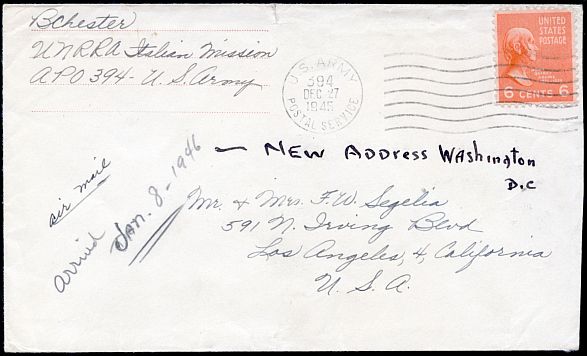 BChester
UNRRA Italian Mission
APO 394 - U.S. Army
U.S. ARMY
394
DEC 27
1945
POSTAL SERVICE
UNITED
STATES
POSTAGE
6 CENTS 6
— NEW ADDRESS WASHINGTON
D.C
air mail
arrived JAN. 8 - 1946
Mr. & Mrs. F.W. Segelia
591 N. Irving Blvd
Los Angeles, 4, California
U.S.A.